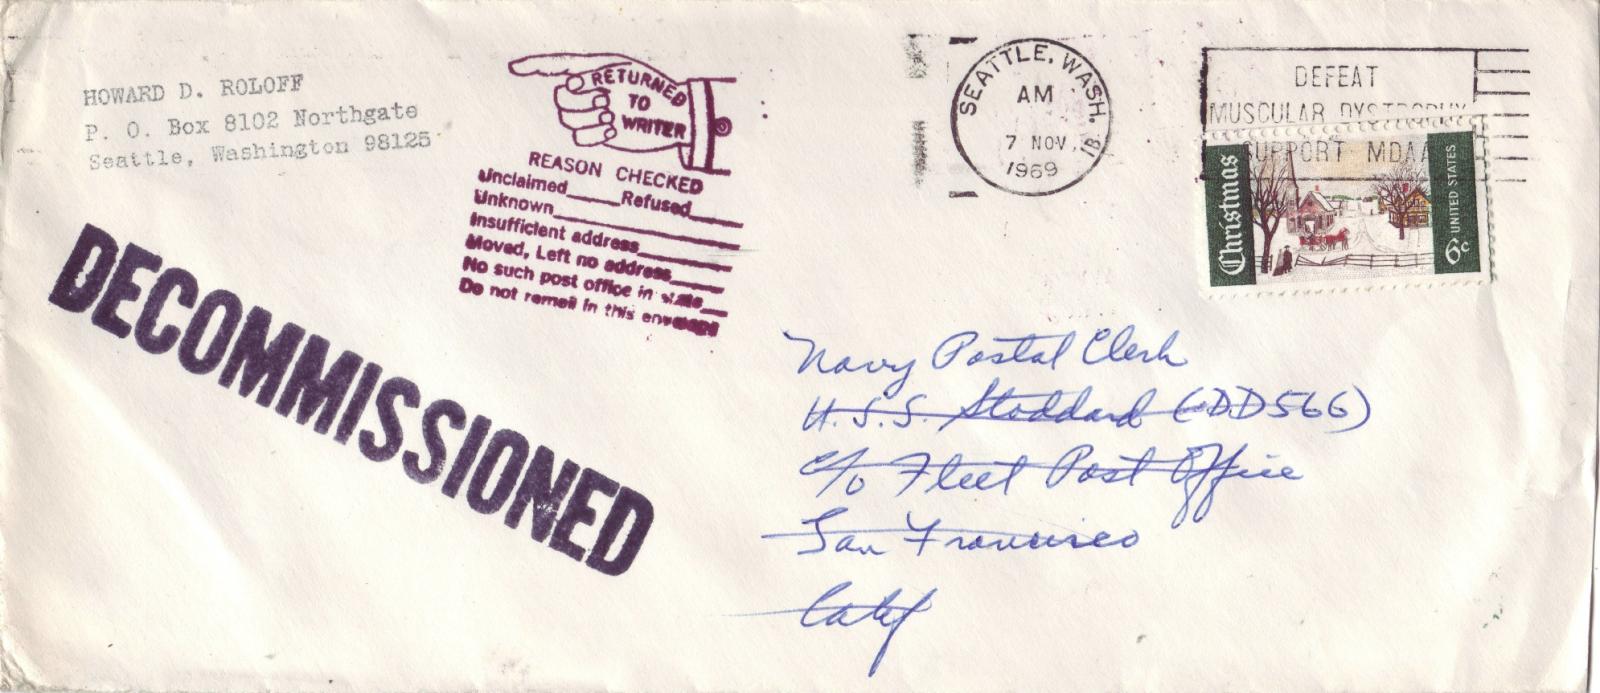 HOWARD D. ROLOFF
P. O. Box 8102 Northgate
Seattle, Washington 98125
RETURNED
TO
WRITER
REASON CHECKED
Unclaimed____Refused____
Unknown____
Insufficient address____
Moved, Left no address____
No such post office in state____
Do not remail in this envelope
DECOMMISSIONED
SEATTLE, WASH.
AM
7 NOV
1969
DEFEAT
MUSCULAR DYSTROPHY
SUPPORT MDAA
Christmas
6c UNITED STATES
Navy Postal Clerk
U.S.S. Stoddard (DD566)
c/o Fleet Post Office
San Francisco
Calif